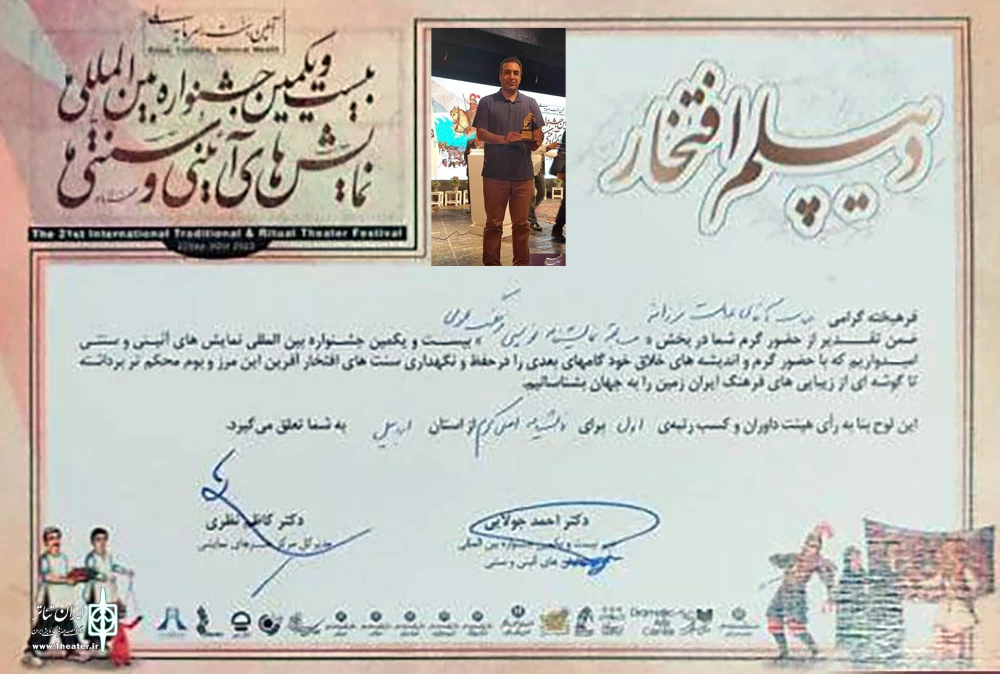 آیین، سنت، سرمایه ملی
Ritual, Tradition, National Wealth
بیست و یکمین جشنواره بین المللی
نمایش های آیینی و سنتی
The 21st International Traditional & Ritual Theater Festival
دیپلم افتخار
فرهیخته گرامی جناب آقای
ضمن تقدیر از حضور گرم شما در بخش « مسابقه نمایشنامه نویسی » بیست و یکمین جشنواره بین المللی نمایش های آئینی و سنتی
امیدواریم که با حضور گرم و اندیشه های خلاق خود گامهای بعدی را در حفظ و نگهداری سنت های افتخار آفرین این مرز و بوم محکم تر برداشته
تا گوشه ای از زیبایی های فرهنگ ایران زمین را به جهان بشناسانیم.
این لوح بنا به رأی هیئت داوران و کسب رتبه‌ی اول برای نمایشنامه از استان اردبیل به شما تعلق می‌گیرد.
دکتر احمد جولایی
بیست و یکمین جشنواره بین المللی
نمایش های آئینی و سنتی
دکتر کاظم نظری
مدیرکل مرکز هنرهای نمایشی
Dramatic
Arts
Center
ایران تئاتر
www.theater.ir